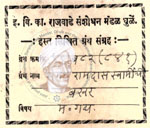 इ. वि. का. राजवाडे संशोधन मंडळ धुळें.
हस्त लिखित ग्रंथ संग्रह
ग्रंथ क्रमांक १८२ (८४१)
ग्रंथ नाम रामदास स्वामींचे
बखर
विषय म. गद्य.